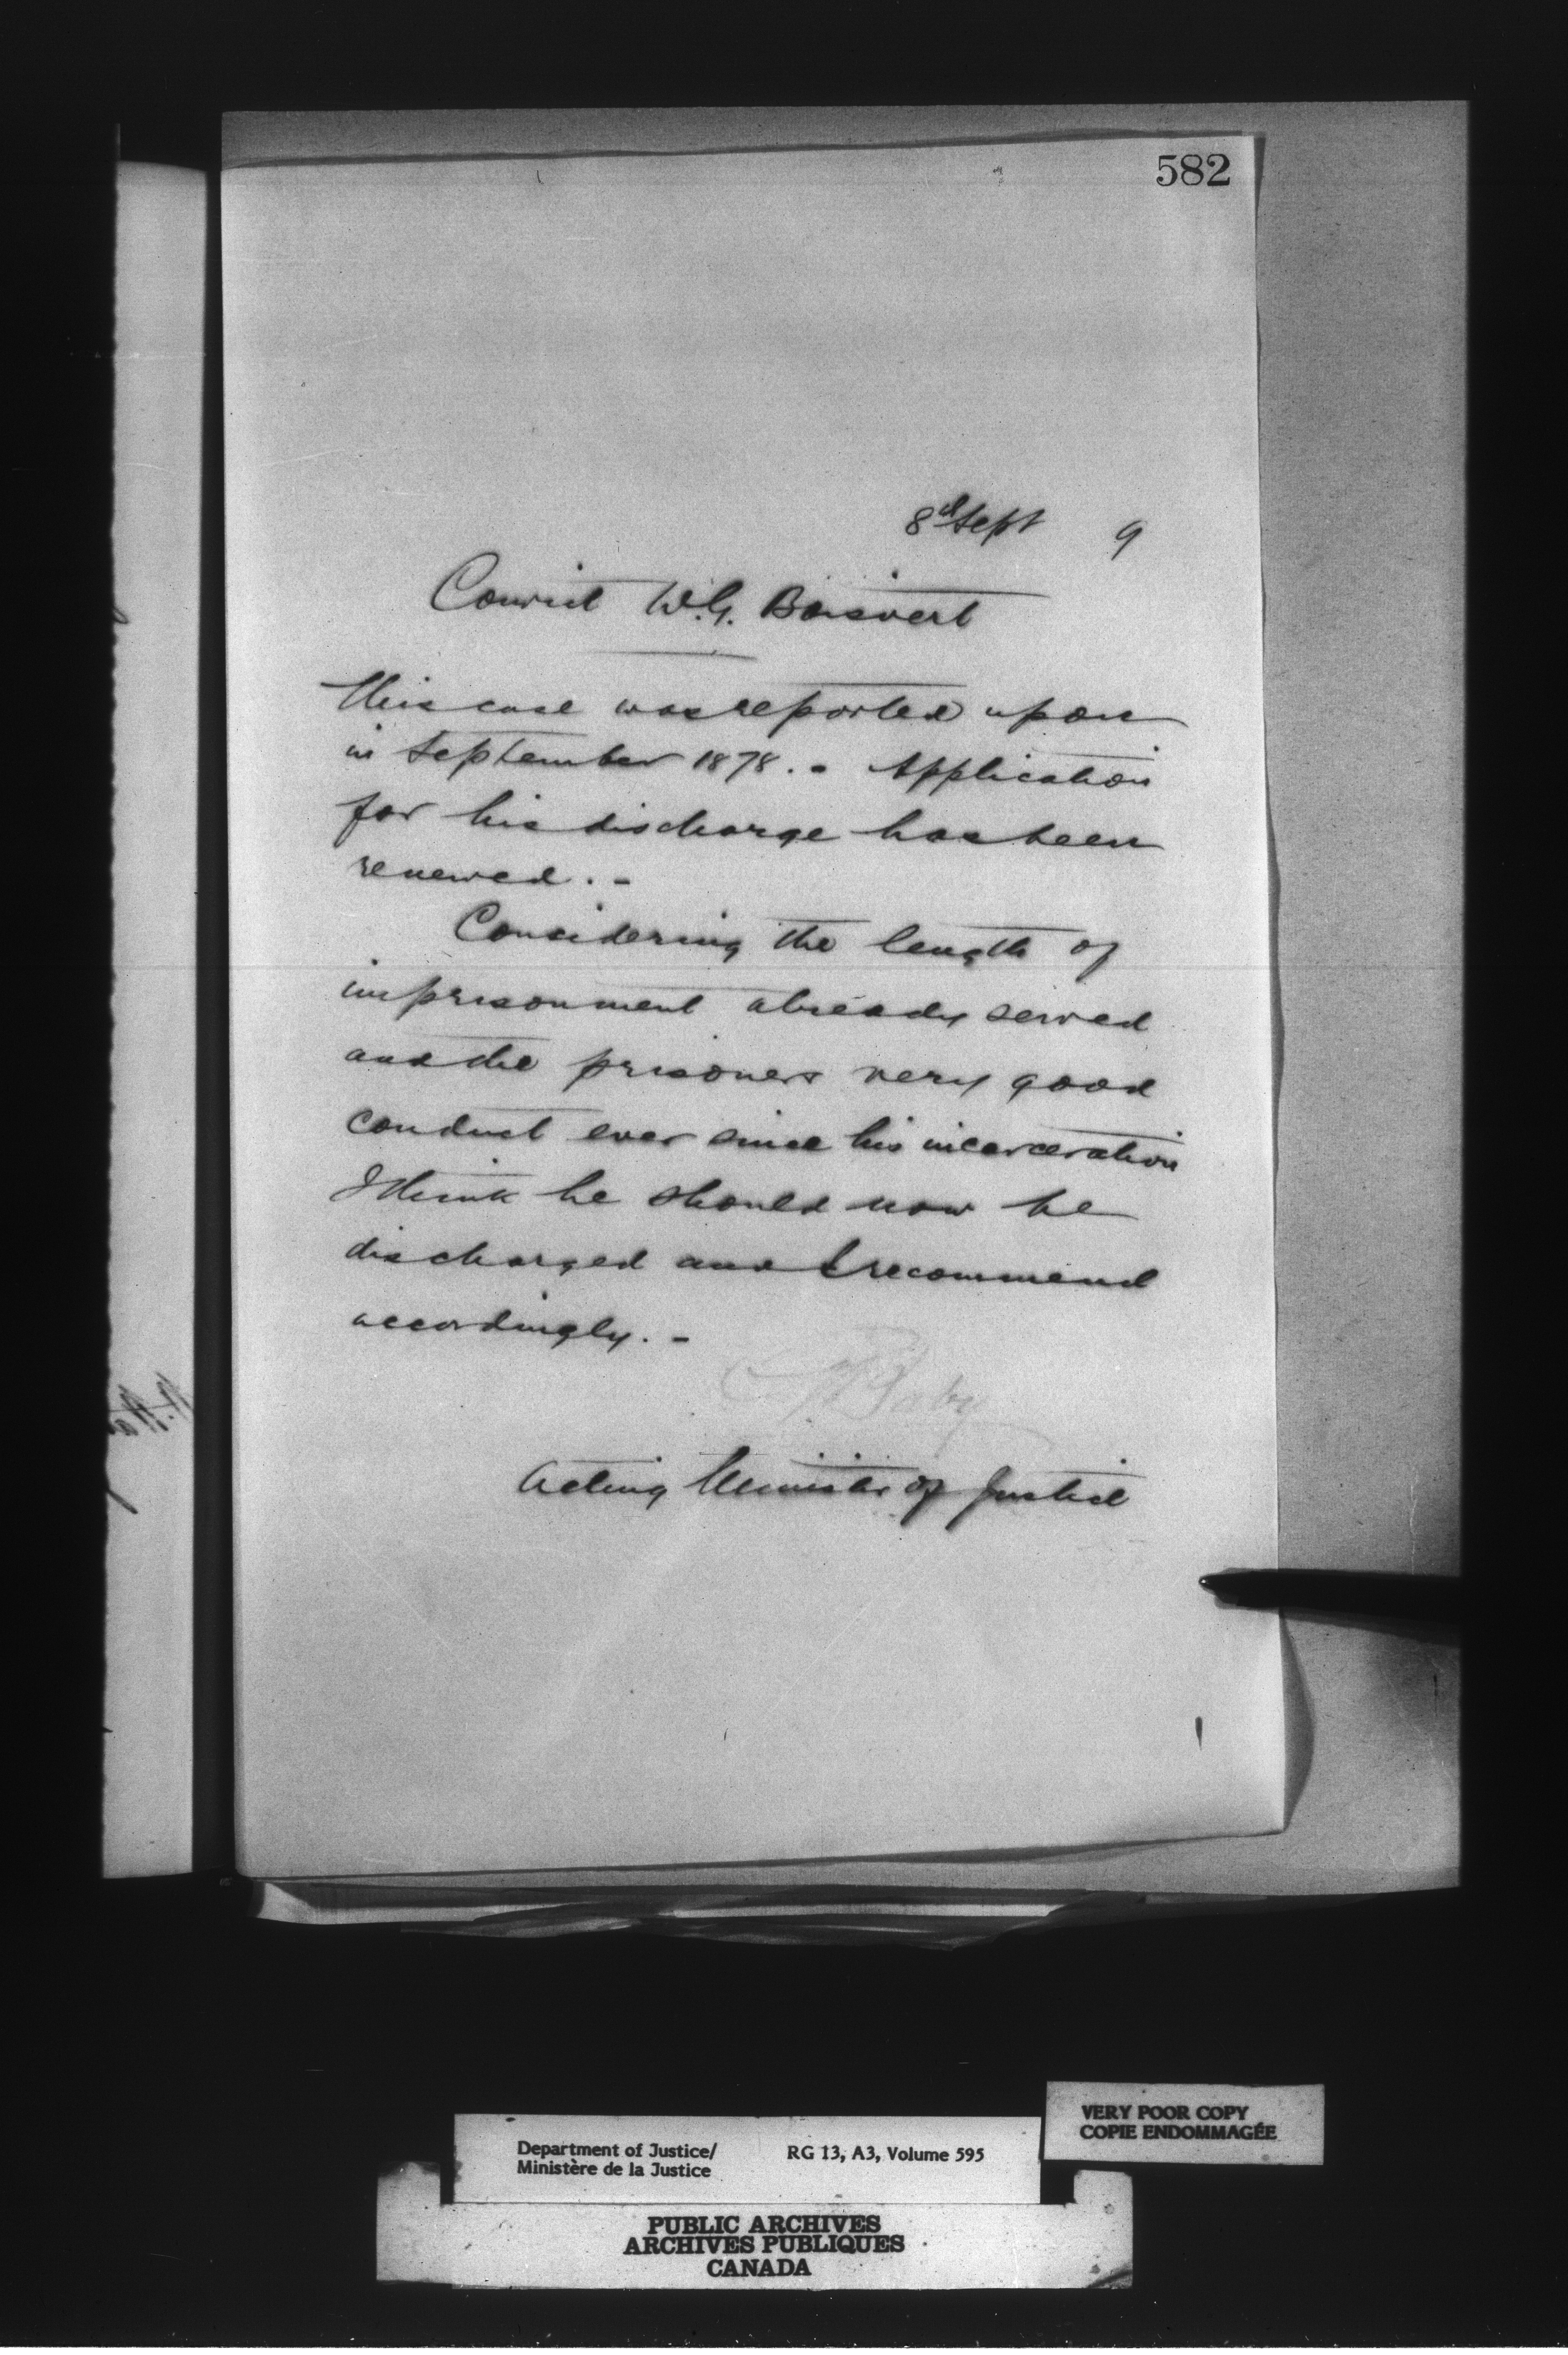 582
8th Sept 9
Convict W.G. Boisvert
This case was reported upon
in September 1878. - Application
for his discharge has been
renewed. -
Considering the length of
imprisonment already served
and the prisoners very good
conduct ever since his incarceration
I think he should now be
discharged and I recommend
accordingly. -
Baby
Acting Minister of Justice
VERY POOR COPY
COPIE ENDOMMAGÉE
Department of Justice/ RG 13, A3, Volume 595
Ministère de la Justice
PUBLIC ARCHIVES
ARCHIVES PUBLIQUES
CANADA